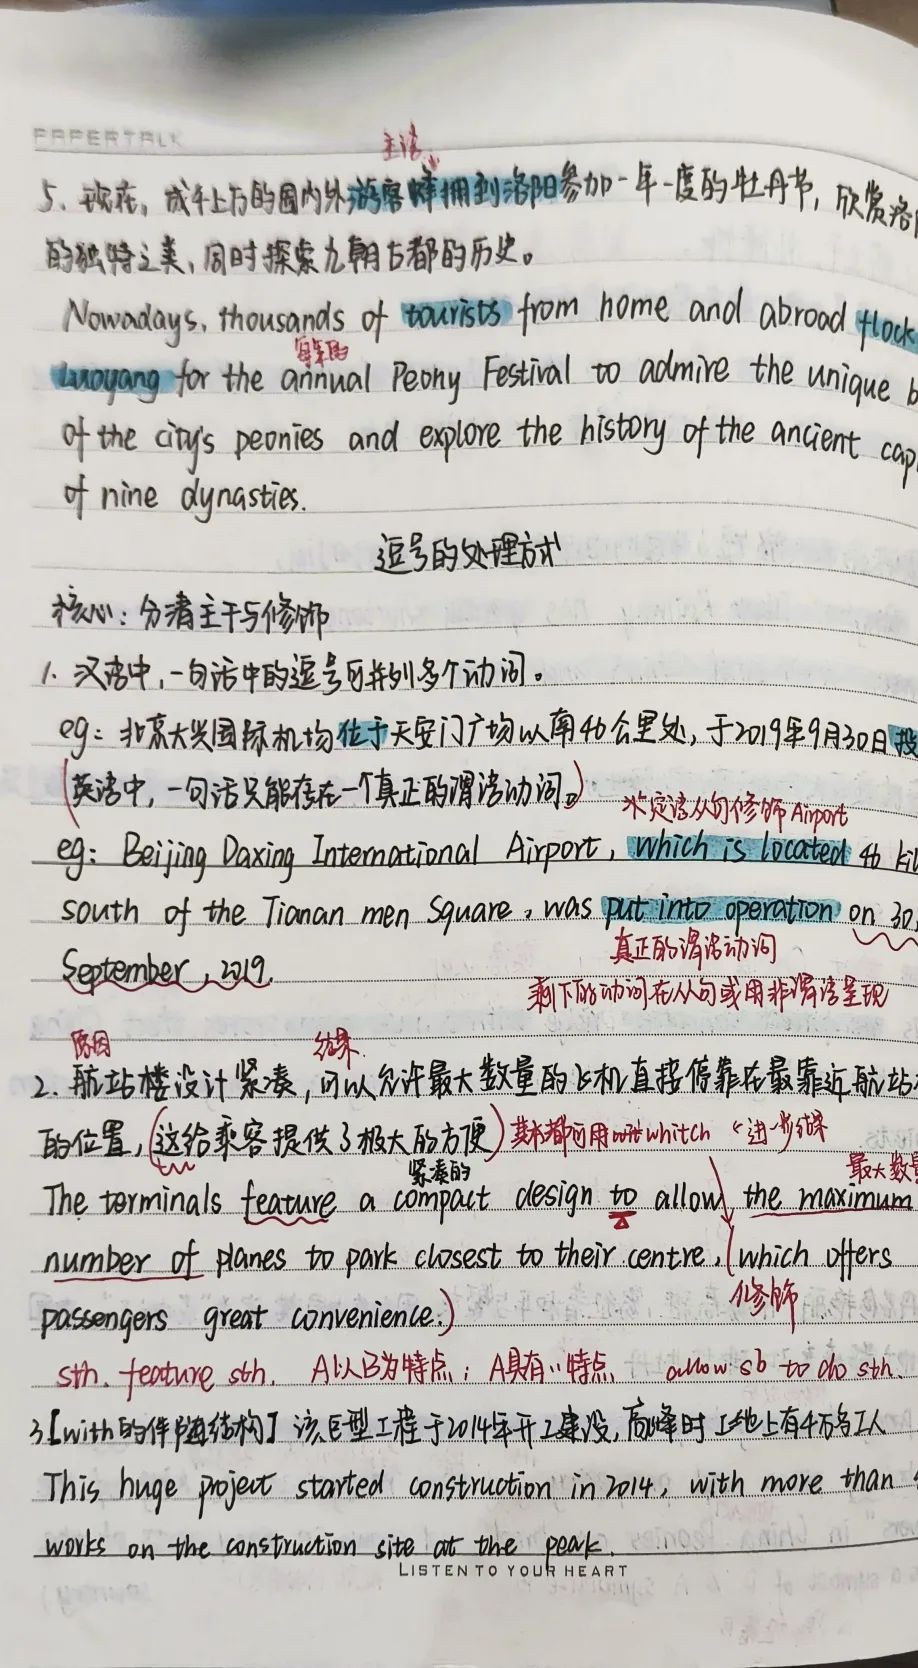 PAPERTALK
主语
5. 现在，成千上万的国内外游客蜂拥到洛阳参加一年一度的牡丹节，欣赏洛
的独特之美，同时探索九朝古都的历史。
Nowadays, thousands of tourists from home and abroad flock
每年的
Luoyang for the annual Peony Festival to admire the unique b
of the city's peonies and explore the history of the ancient cap
of nine dynasties.
逗号的处理方式
核心：分清主干与修饰
1. 汉语中，一句话中的逗号可并列多个动词。
eg：北京大兴国际机场位于天安门广场以南46公里处，于2019年9月30日投
(英语中，一句话只能存在一个真正的谓语动词。)
定语从句修饰 Airport
eg: Beijing Daxing International Airport, which is located 46 kil
south of the Tianan men Square, was put into operation on 30,
真正的谓语动词
September, 2019.
剩下的动词在从句或用非谓语呈现
原因 结果
2. 航站楼设计紧凑，可以允许最大数量的飞机直接停靠在最靠近航站
的位置，(这给乘客提供了极大的方便) 基本都可用 whitch 进一步结果
紧凑的 最大数量
The terminals feature a compact design to allow the maximum
number of planes to park closest to their centre, (which offers
修饰
passengers great convenience.)
sth. feature sth. A以B为特点；A具有…特点 allow sb to do sth.
3.[with的伴随结构] 该巨型工程于2014年开工建设，高峰时工地上有4万名工人
This huge project started construction in 2014, with more than
works on the construction site at the peak.
LISTEN TO YOUR HEART